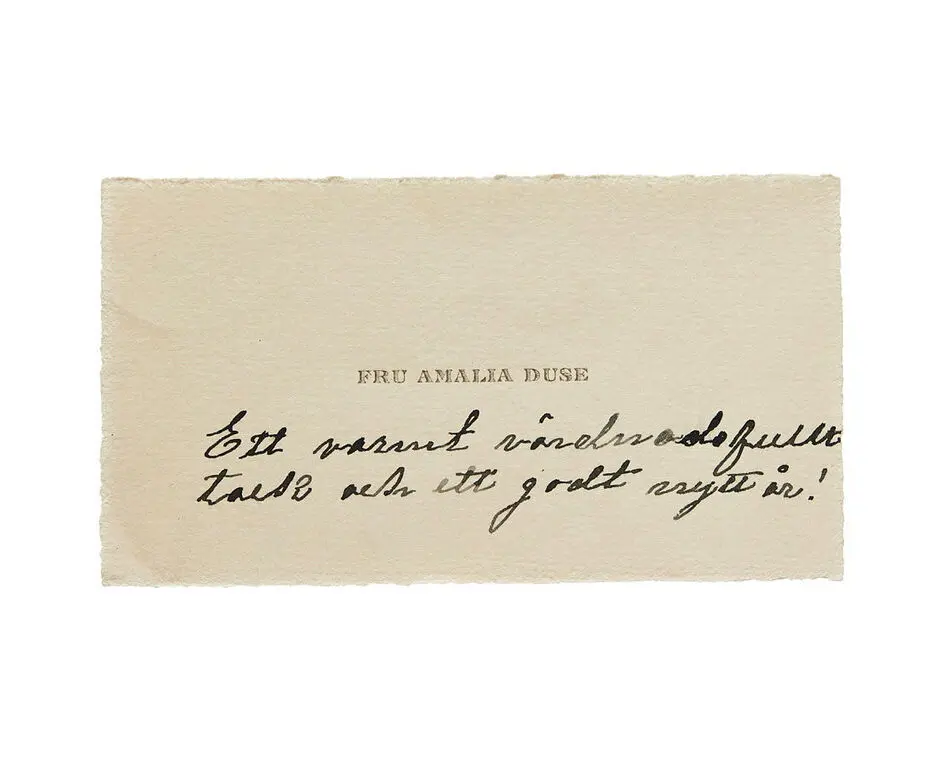 FRU AMALIA DUSE
Ett varmt vördnadsfullt
tack och ett godt nytt år!